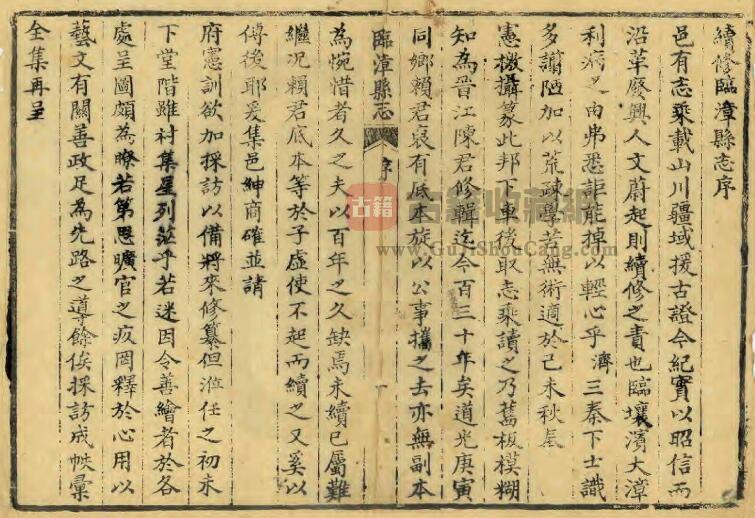 續修臨漳縣志序
邑有志乘載山川疆域援古證今紀實以昭信而
沿革廢興人文蔚起則續修之責也臨壤濱大漳
利病之由弗悉詎能掉以輕心乎濟三秦下士識
多譾陋加以荒疎學若無術適於己未秋奉
憲檄攝篆此邦下車後取志乘讀之乃舊板模糊
知為晉江陳君修輯迄今百三十年矣道光庚寅
同鄉賴君裒有底本旋以公事攜之去亦無副本
臨漳縣志
序
一
為惋惜者久之夫以百年之久缺焉未續已屬難
繼况賴君底本等於子虛使不起而續之又奚以
傳後耶爰集邑紳商確並請
府憲訓欲加採訪以備將來修纂但涖任之初未
下堂階雖村集星列茫乎若迷因令善繪者於各
處呈圖頗為瞭若第思曠官之疚罔釋於心用以
藝文有關善政足為先路之導餘俟採訪成帙彙
全集再呈
古籍收藏網
www.GuJiShouCang.com